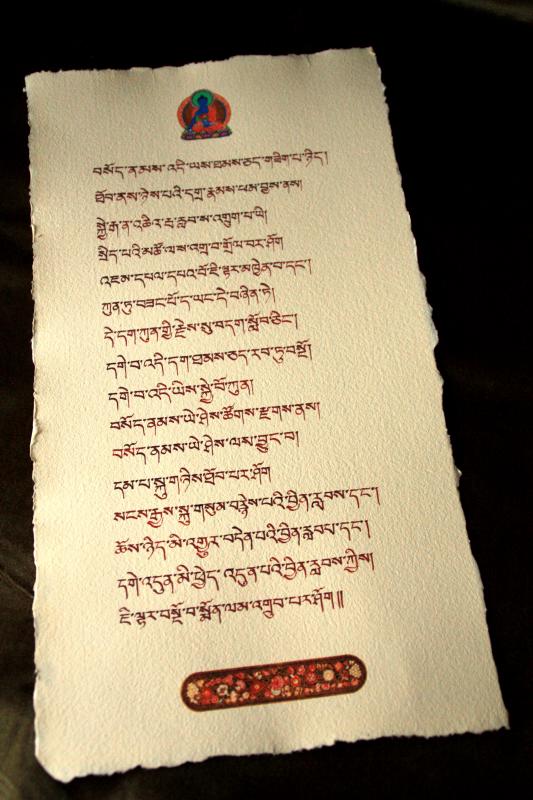 བསོད་ནམས་འདི་ཡས་ཐམས་ཅད་གཟིག་པ་ཉིད།
ཐོབ་ནས་ཉེས་པའི་དགྲ་རྣམས་ཕམ་བྱས་ནས།
སྐྱེ་རྒ་ན་འཆིར་རྦ་རླབས་འཁྲུག་པ་ཡི།
སྲིད་པའི་མཚོ་ལས་འགྲོ་བ་གྲོལ་བར་ཤོག
འཇམ་དཔལ་དཔའ་བོ་ཇི་ལྟར་མཁྱེན་པ་དང༌།
ཀུན་ཏུ་བཟང་པོ་ད་ཡང་དེ་བཞིན་ཏེ།
དེ་དག་ཀུན་གྱི་རྗེས་སུ་བདག་སློབ་ཅིང༌།
དགེ་བ་འདི་དག་ཐམས་ཅད་རབ་ཏུ་བསྔོ།
དགེ་བ་འདི་ཡིས་སྐྱེ་བོ་ཀུན།
བསོད་ནམས་ཡེ་ཤེས་ཚོགས་རྫགས་ནས།
བསོད་ནམས་ཡེ་ཤེས་ལས་བྱུང་བ།
དམ་པ་སྐུ་གཉིས་ཐོབ་པར་ཤོག
སངས་རྒྱས་སྐུ་གསུམ་བརྙེས་པའི་བྱིན་རླབས་དང༌།
ཆོས་ཉིད་མི་འགྱུར་བདེན་པའི་བྱིན་རླབས་དང༌།
དགེ་འདུན་མི་ཕྱེད་འདུན་པའི་བྱིན་རླབས་ཀྱིས།
ཇི་ལྟར་བསྔོ་བ་སྨོན་ལམ་འགྲུབ་པར་ཤོག༎